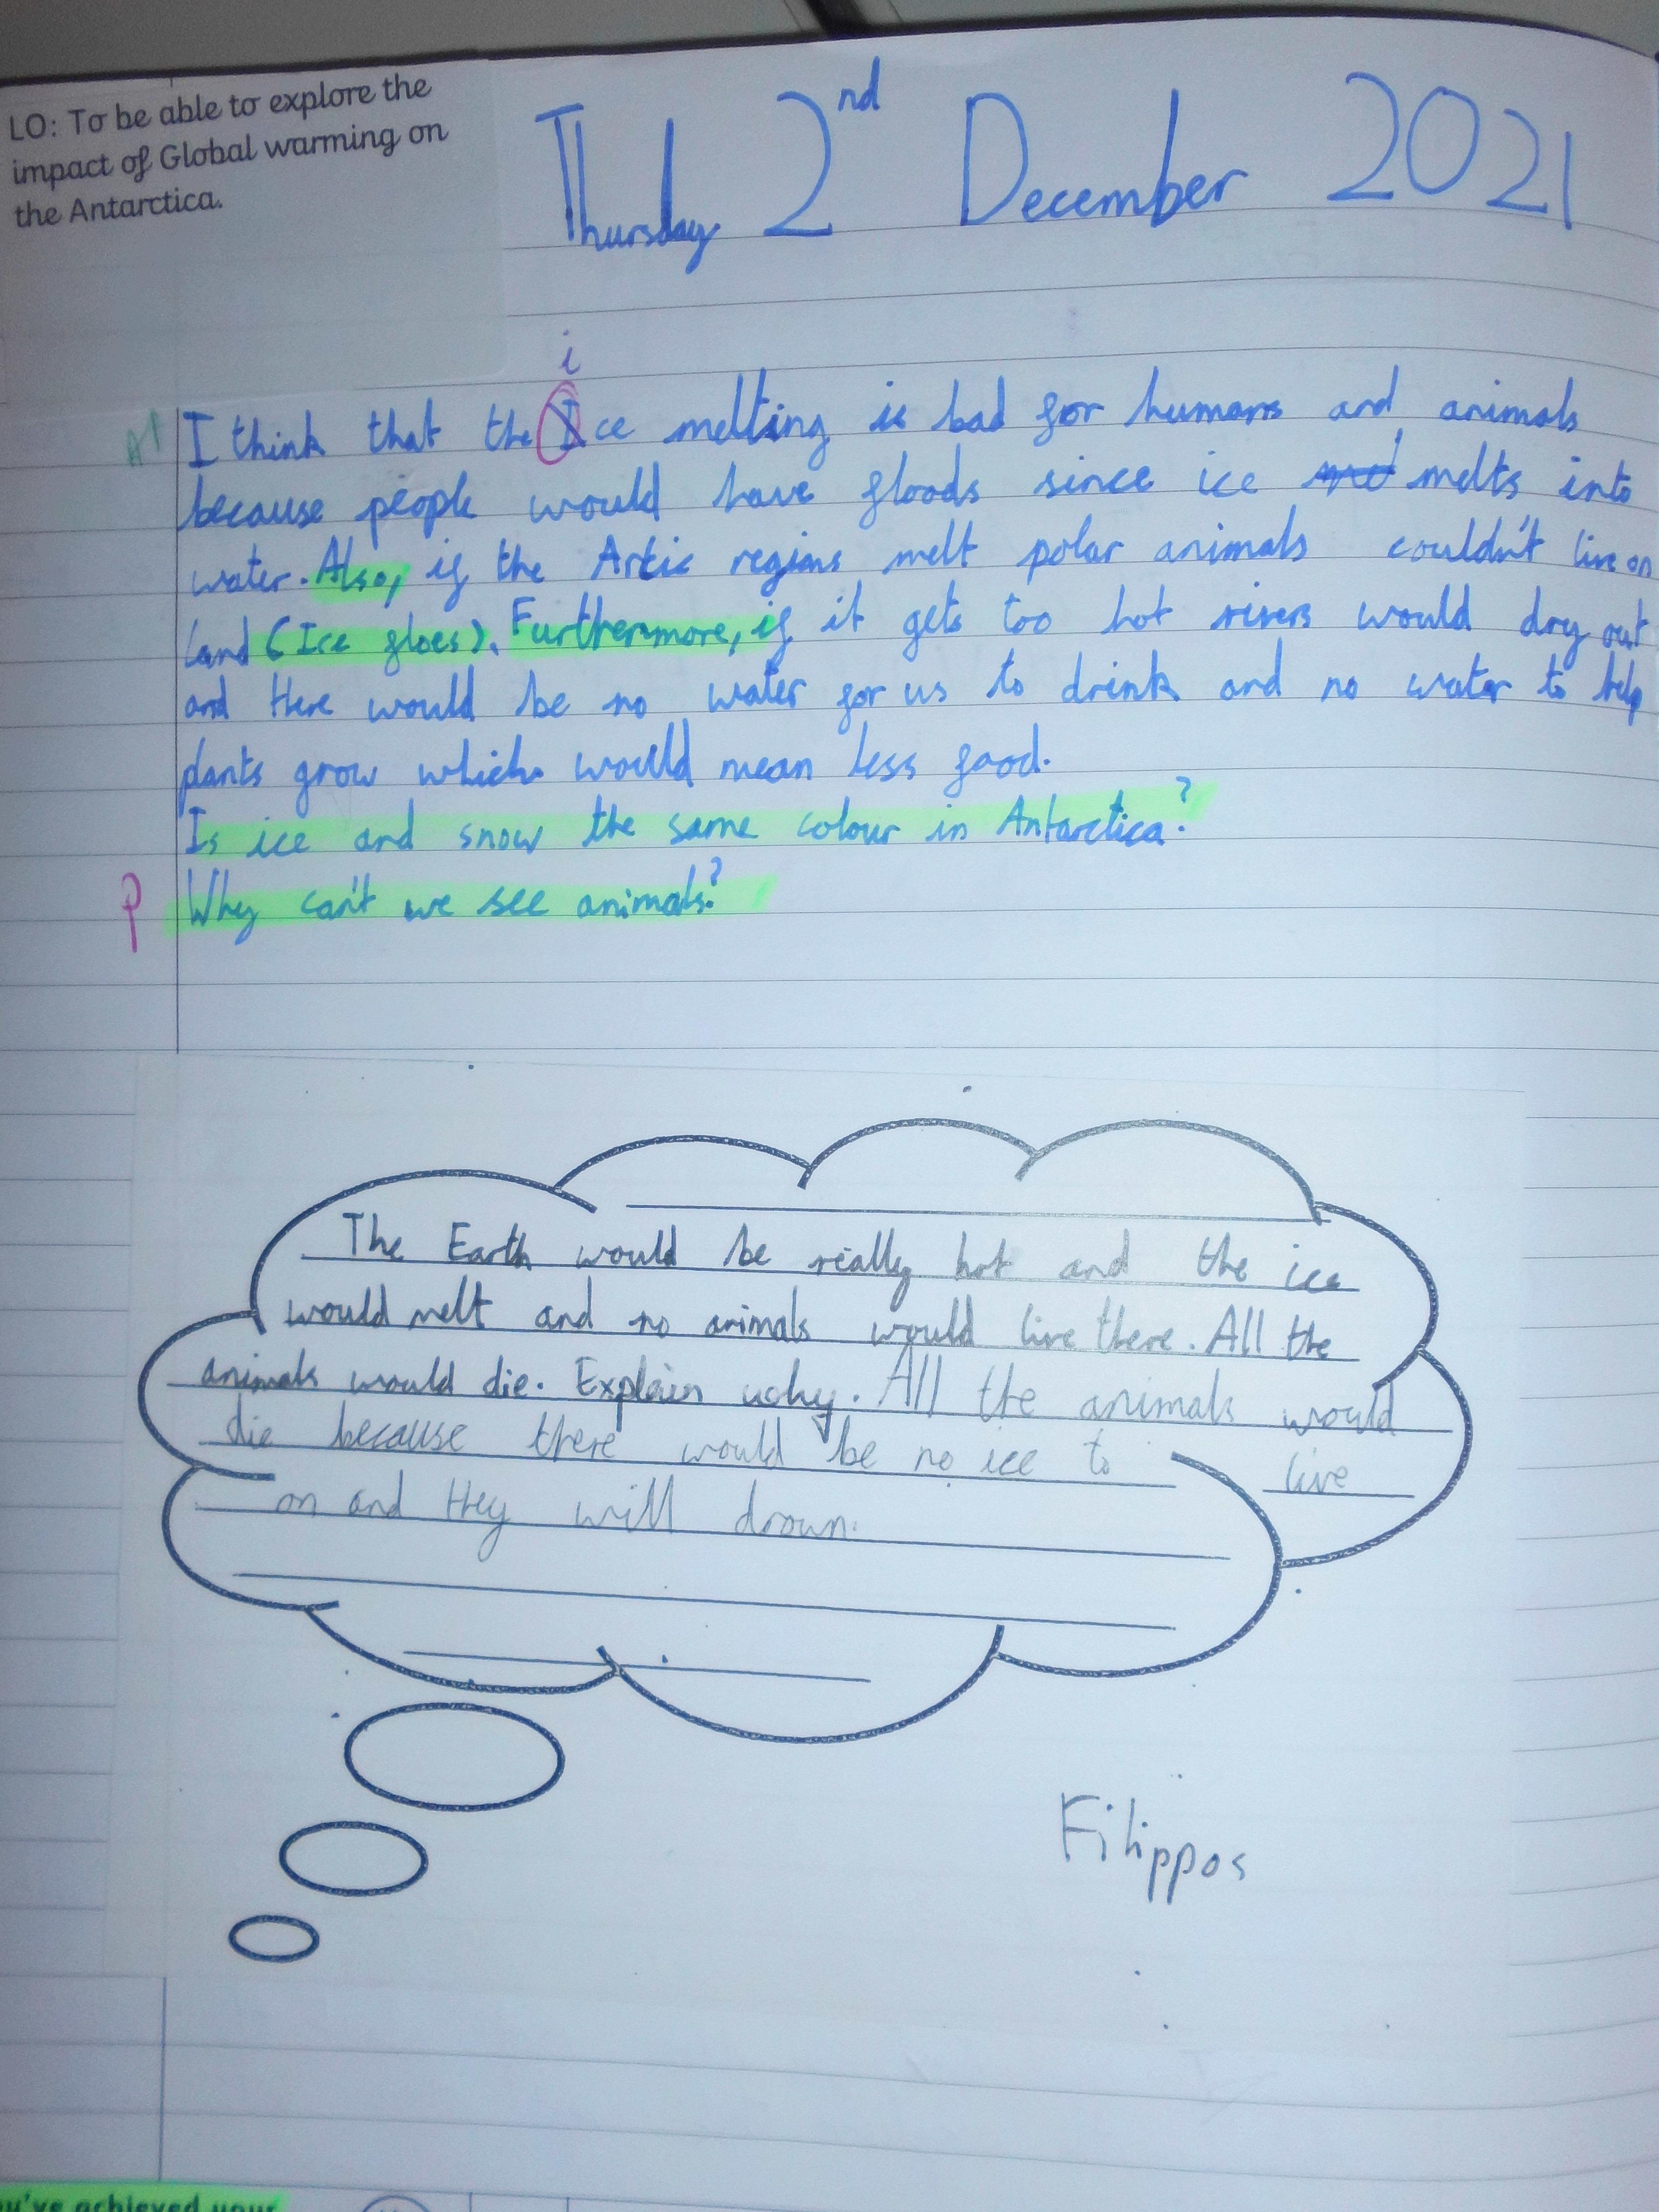 LO: To be able to explore the
impact of Global warming on
the Antarctica.
Thursday 2nd December 2021
i
I think that the Ice melting is bad for humans and animals
because people would have floods since ice melts into
water. Also, if the Artic regions melt polar animals couldn't live on
land (Ice floes). Furthermore, if it gets too hot rivers would dry out
and there would be no water for us to drink and no water to help
plants grow which would mean less food.
Is ice and snow the same colour in Antarctica?
P Why can't we see animals?
The Earth would be really hot and the ice
would melt and no animals would live there. All the
animals would die. Explain why. All the animals would
die because there would be no ice to live
on and they will drown.
Filippos
you've achieved your